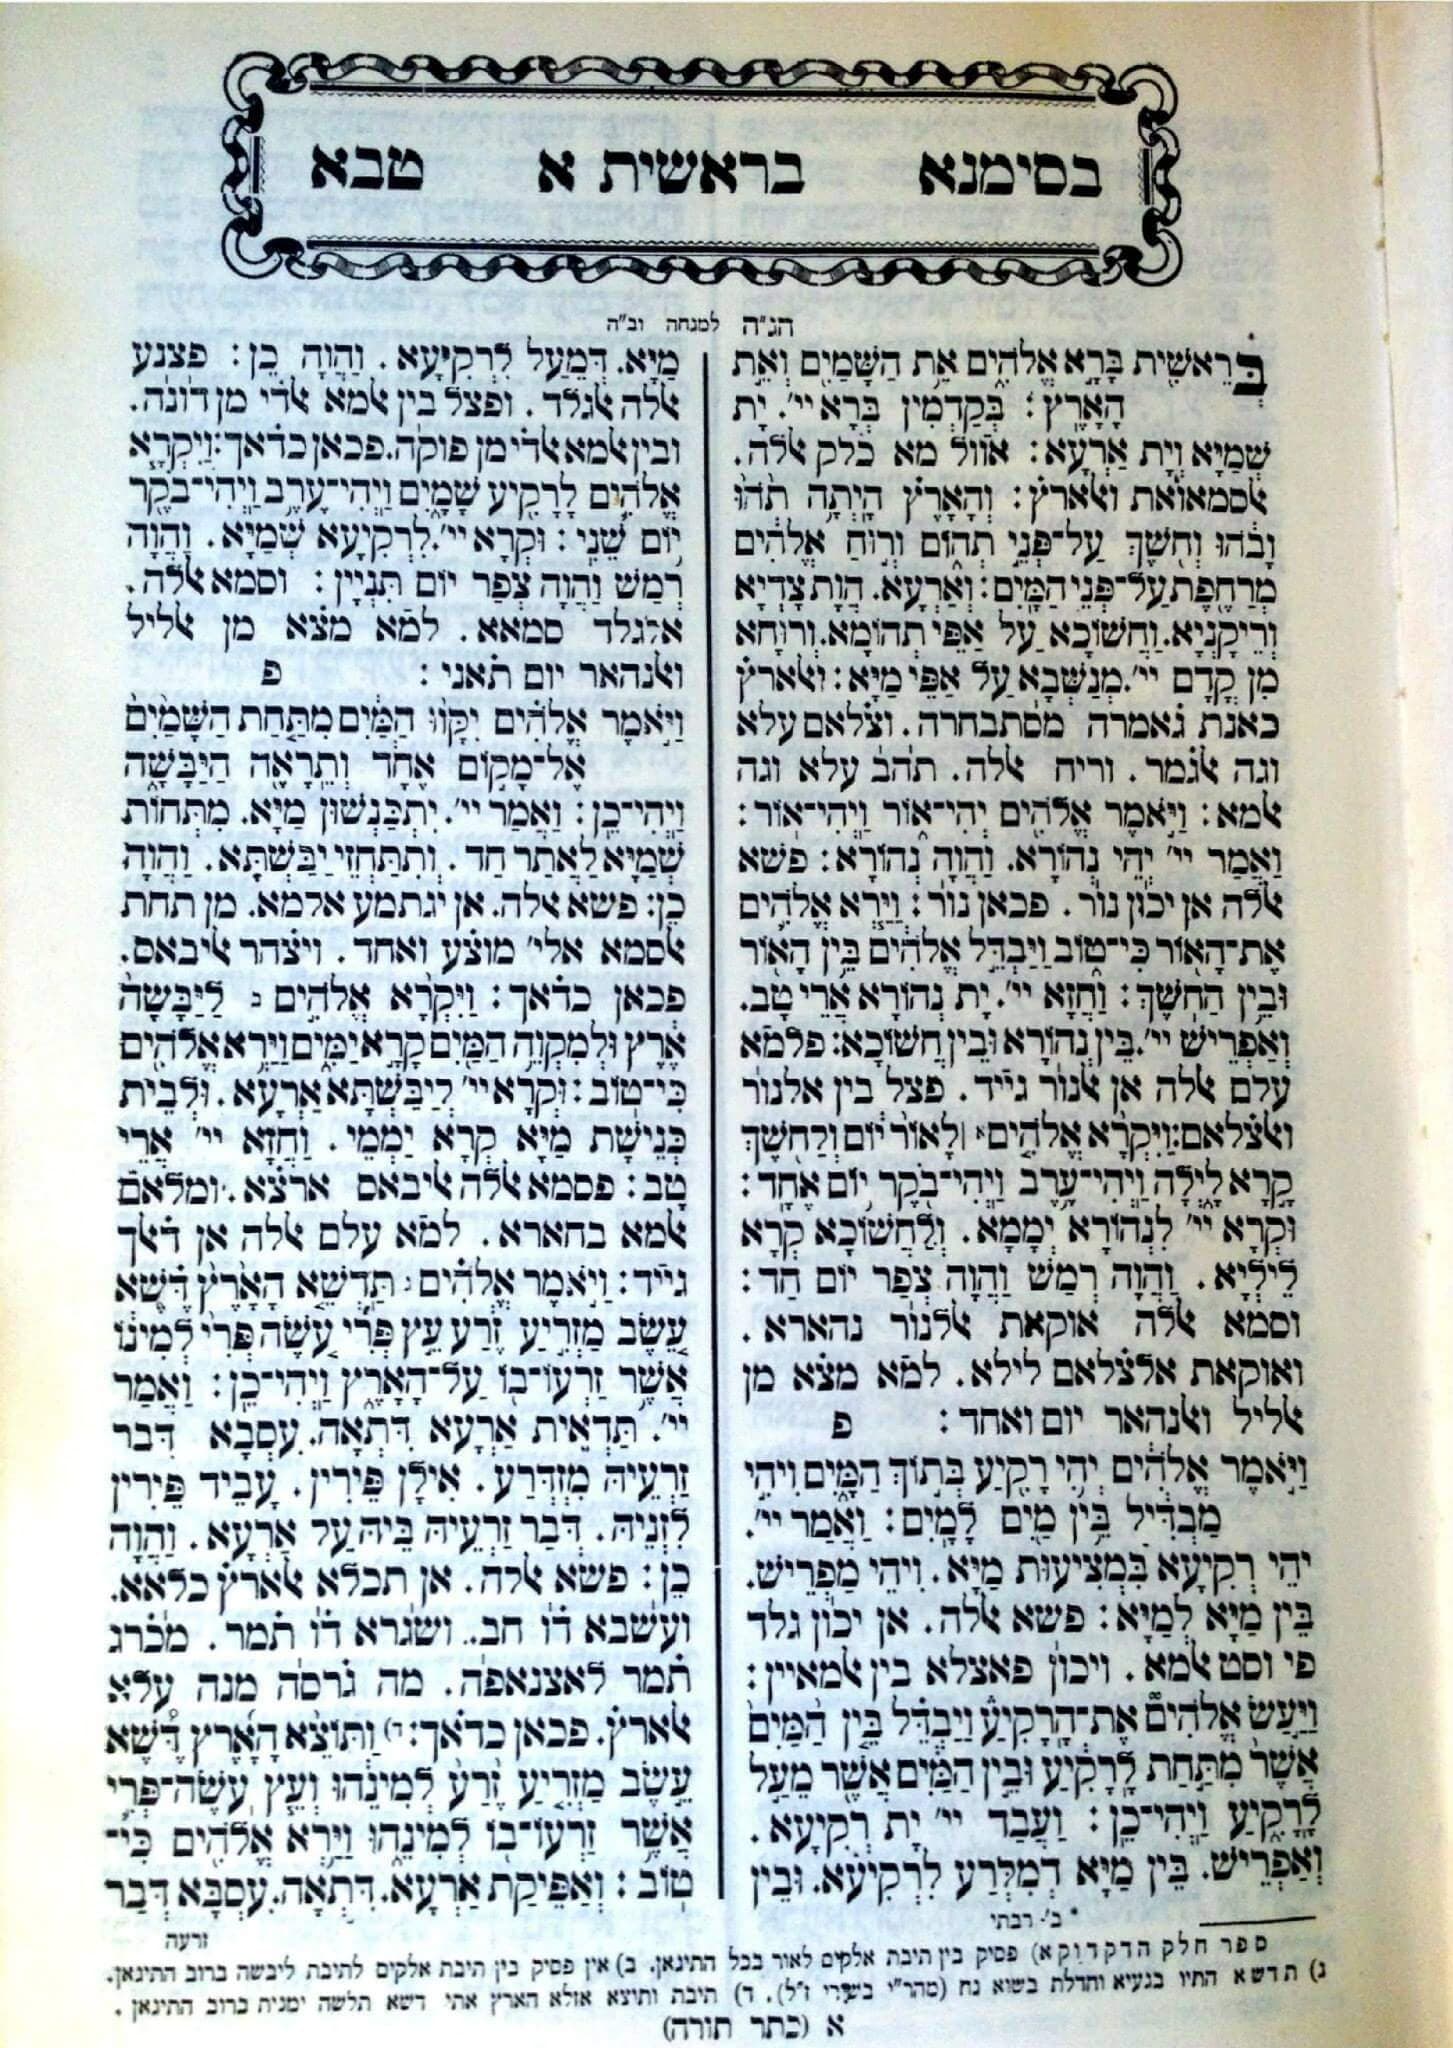 בסימנא בראשית א טבא
הג״ה למנחה וב״ה
בראשית ברא אלהים את השמים ואת
הארץ: בקדמין ברא יי׳. ית
שמיא וית ארעא: אוול מא כלק אללה.
אלסמאואת ואלארץ: והארץ היתה תהו
ובהו וחשך על־פני תהום ורוח אלהים
מרחפת על־פני המים: וארעא. הות צדיא
וריקניא. וחשוכא על אפי תהומא. ורוחא
מן קדם יי׳. מנשבא על אפי מיא: ואלארץ
כאנת גאמרה מסתבחרה. וצלאם עלא
וגה אלגמר. וריח אללה. תהב עלא וגה
אלמא: ויאמר אלהים יהי־אור ויהי־אור:
ואמר יי׳ יהי נהורא. והוה נהורא: פשא
אללה אן יכון נור. פכאן נור: וירא אלהים
את־האור כי־טוב ויבדל אלהים בין האור
ובין החשך: וחזא יי׳. ית נהורא ארי טב.
ואפריש יי׳. בין נהורא ובין חשוכא: פלמא
עלם אללה אן אלנור גייד. פצל בין אלנור
ואלצלאם: ויקרא אלהים א ׀ לאור יום ולחשך
קרא לילה ויהי־ערב ויהי־בקר יום אחד:
וקרא יי׳ לנהורא יממא. ולחשוכא קרא
ליליא. והוה רמש והוה צפר יום חד:
וסמא אללה אוקאת אלנור נהארא.
ואוקאת אלצלאם לילא. למא מצא מן
אליל ואלנהאר יום ואחד: פ
ויאמר אלהים יהי רקיע בתוך המים ויהי
מבדיל בין מים למים: ואמר יי׳.
יהי רקיעא במציעות מיא. ויהי מפריש.
בין מיא למיא: פשא אללה. אן יכון גלד
פי וסט אלמא. ויכון פאצלא בין אלמאיין:
ויעש אלהים את־הרקיע ויבדל בין המים
אשר מתחת לרקיע ובין המים אשר מעל
לרקיע ויהי־כן: ועבד יי׳ ית רקיעא.
ואפריש. בין מיא דמלרע לרקיעא. ובין
מיא. דמעל לרקיעא. והוה כן: פצנע
אללה אלגלד. ופצל בין אלמא אלדי מן דונה.
ובין אלמא אלדי מן פוקה. פכאן כדאך: ויקרא
אלהים לרקיע שמים ויהי־ערב ויהי־בקר
יום שני: וקרא יי׳. לרקיעא שמיא. והוה
רמש והוה צפר יום תניין: וסמא אללה.
אלגלד סמאא. למא מצא מן אליל
ואלנהאר יום תאני: פ
ויאמר אלהים יקוו המים מתחת השמים
אל־מקום אחד ותראה היבשה
ויהי־כן: ואמר יי׳. יתכנשון מיא. מתחות
שמיא לאתר חד. ותתחזי יבשתא. והוה
כן: פשא אללה. אן יגתמע אלמא. מן תחת
אלסמא אלי׳ מוצע ואחד. ויצהר אליבאס.
פכאן כדאך: ויקרא אלהים ב ליבשה
ארץ ולמקוה המים קרא ימים וירא אלהים
כי־טוב: וקרא יי׳ ליבשתא ארעא. ולבית
כנישת מיא קרא יממי. וחזא יי׳ ארי
טב: פסמא אללה אליבאס ארצא. ומלאם
אלמא בחארא. למא עלם אללה אן דאלך
גייד: ויאמר אלהים ג תדשא הארץ דשא
עשב מזריע זרע עץ פרי עשה פרי למינו
אשר זרעו־בו על־הארץ ויהי־כן: ואמר
יי׳. תדאית ארעא דתאה. עסבא דבר
זרעיה מזדרע. אילן פירין. עביד פירין
לזניה. דבר זרעיה ביה על ארעא. והוה
כן: פשא אללה. אן תכלא אלארץ כלאא.
ועשבא דו חב. ושגרא דו תמר. מכרג
תמר לאצנאפה. מה גרסה מנה עלא
אלארץ. פכאן כדאך: ד) ותוצא הארץ דשא
עשב מזריע זרע למינהו ועץ עשה־פרי
אשר זרעו־בו למינהו וירא אלהים כי־
טוב: ואפיקת ארעא. דתאה. עסבא דבר
זרעה
* ב׳ רבתי
ספר חלק הדקדוק א) פסיק בין תיבת אלקים לאור בכל התיגאן. ב) אין פסיק בין תיבת אלקים לתיבת ליבשה ברוב התיגאן.
ג) תדשא התיו בגעיא והדלת בשוא נח (מהר״י בשירי ז״ל). ד) תיבת ותוצא אזלא הארץ אתי דשא תלשה ימנית ברוב התיגאן.
א (כתר תורה)